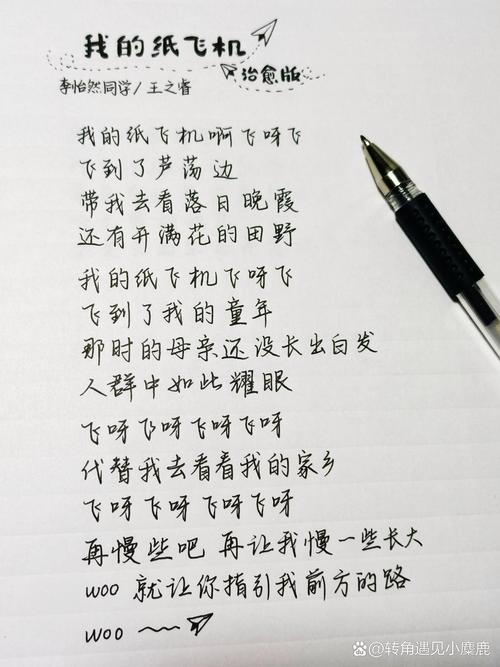 我的纸飞机
治愈版
李怡然同学/王之睿
我的纸飞机啊飞呀飞
飞到了芦荡边
带我去看落日晚霞
还有开满花的田野
我的纸飞机飞呀飞
飞到了我的童年
那时的母亲还没长出白发
人群中如此耀眼
飞呀飞呀飞呀飞呀
代替我去看看我的家乡
飞呀飞呀飞呀飞呀
再慢些吧 再让我慢一些长大
woo 就让你指引我前方的路
woo ~~
转角遇见小麋鹿